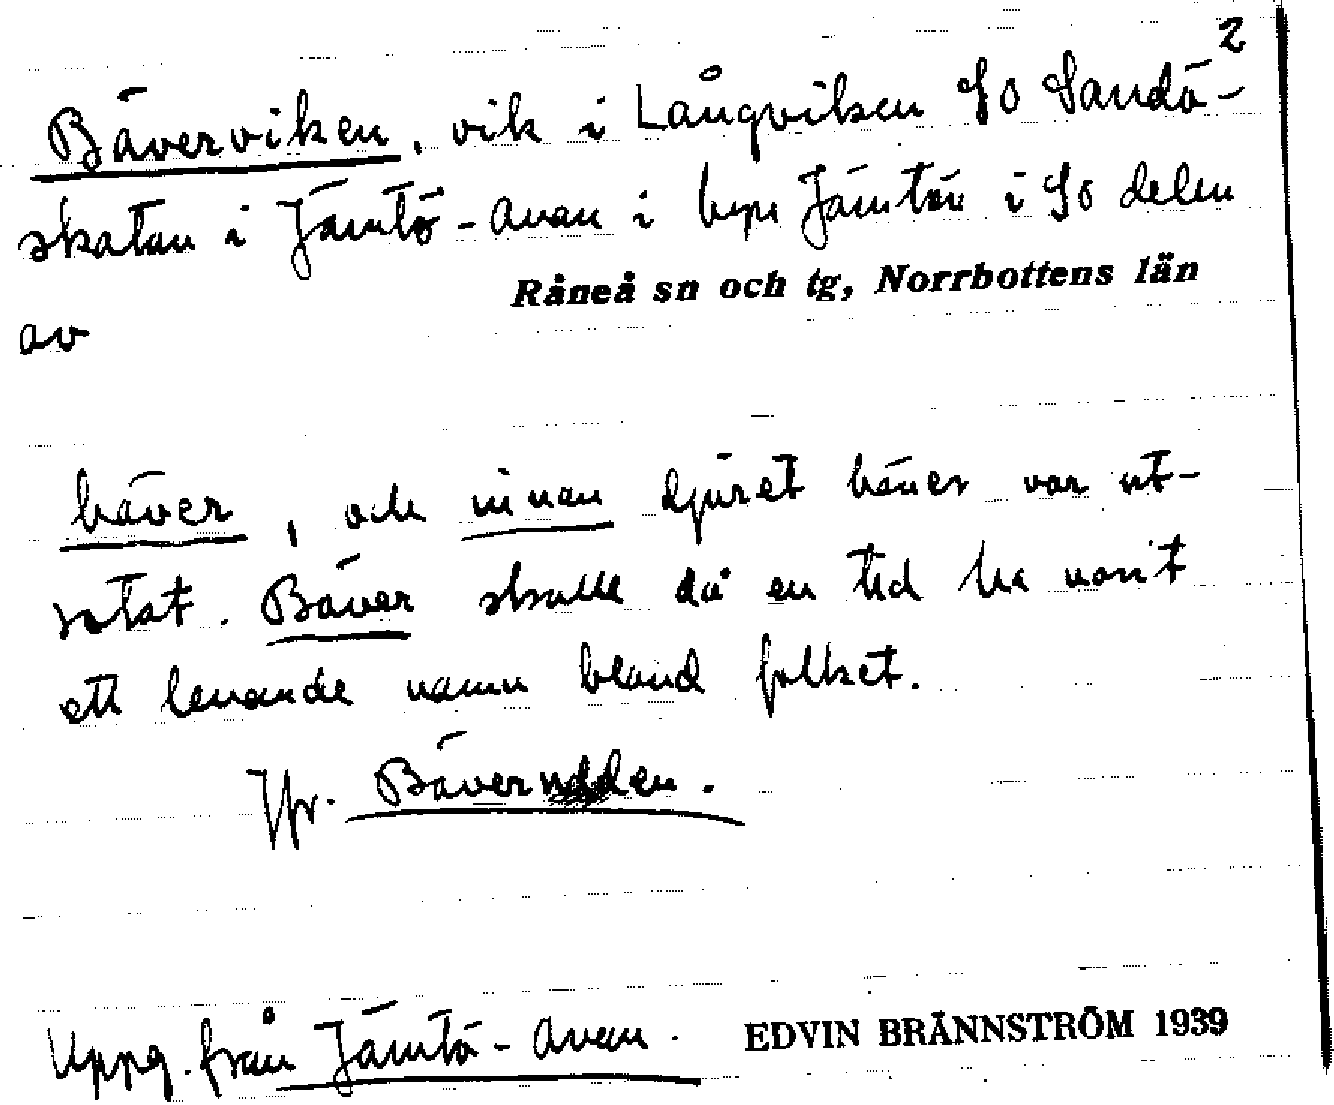 2
Bäverviken, vik i Långviken SO Sandö-
skatan i Jämtö-Avan i byn Jämtön i SO delen
Råneå sn och tg, Norrbottens län
av
bäver, och innan djuret bäver var ut-
rotat. Bäver skulle då en tid ha varit
ett levande namn bland folket.
Jfr. Bäverudden.
Uppg. från Jämtö-Avan. EDVIN BRÄNNSTRÖM 1939